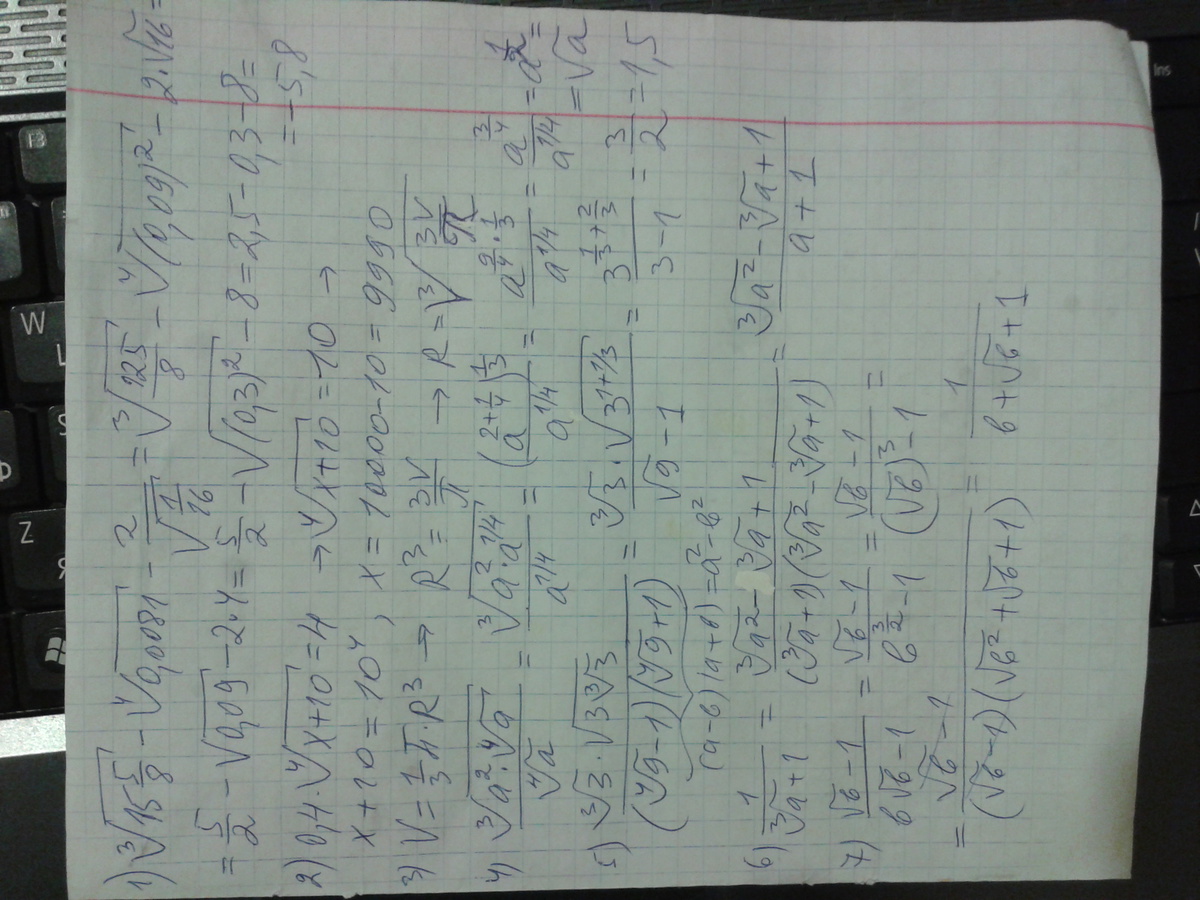 1) ∛(15 5/8) - ∜0,0081 - 2/√(1/16) = ∛(125/8) - ∜(0,09)² - 2·√16 =
= 5/2 - √0,09 - 2·4 = 5/2 - √(0,3)² - 8 = 2,5 - 0,3 - 8 =
= -5,8
2) 0,4·∜(x+10) = 4 → ∜(x+10) = 10 →
x+10 = 10⁴, x = 10000-10 = 9990
3) V = 1/3 π·R³ → R³ = 3V/π → R = ∛(3V/π)
4) ∛(a²·∜a)/∜a = ∛(a²·a^(1/4))/a^(1/4) = (a^(2+1/4))^(1/3)/a^(1/4) = a^(9/4·1/3)/a^(1/4) = a^(3/4)/a^(1/4) = a^(1/2) =
= √a
5) ∛3·√(3∛3)/((∜9-1)(∜9+1)) = ∛3·√(3^(1+1/3))/(√9-1) = 3^(1/3+2/3)/(3-1) = 3/2 = 1,5
(a-b)(a+b) = a²-b²
6) 1/(∛a+1) = (∛a²-∛a+1)/((∛a+1)(∛a²-∛a+1)) = (∛a²-∛a+1)/(a+1)
7) (√b-1)/(b√b-1) = (√b-1)/(b^(3/2)-1) = (√b-1)/((√b)³-1) =
= (√b-1)/((√b-1)(√b²+√b+1)) = 1/(b+√b+1)
W
Z
Ins